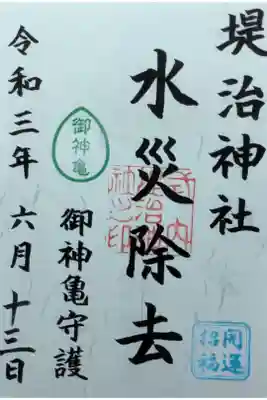 堤治神社
開運
招福
水災除去
式内
社之印
御神亀
御神亀守護
令和三年六月十三日